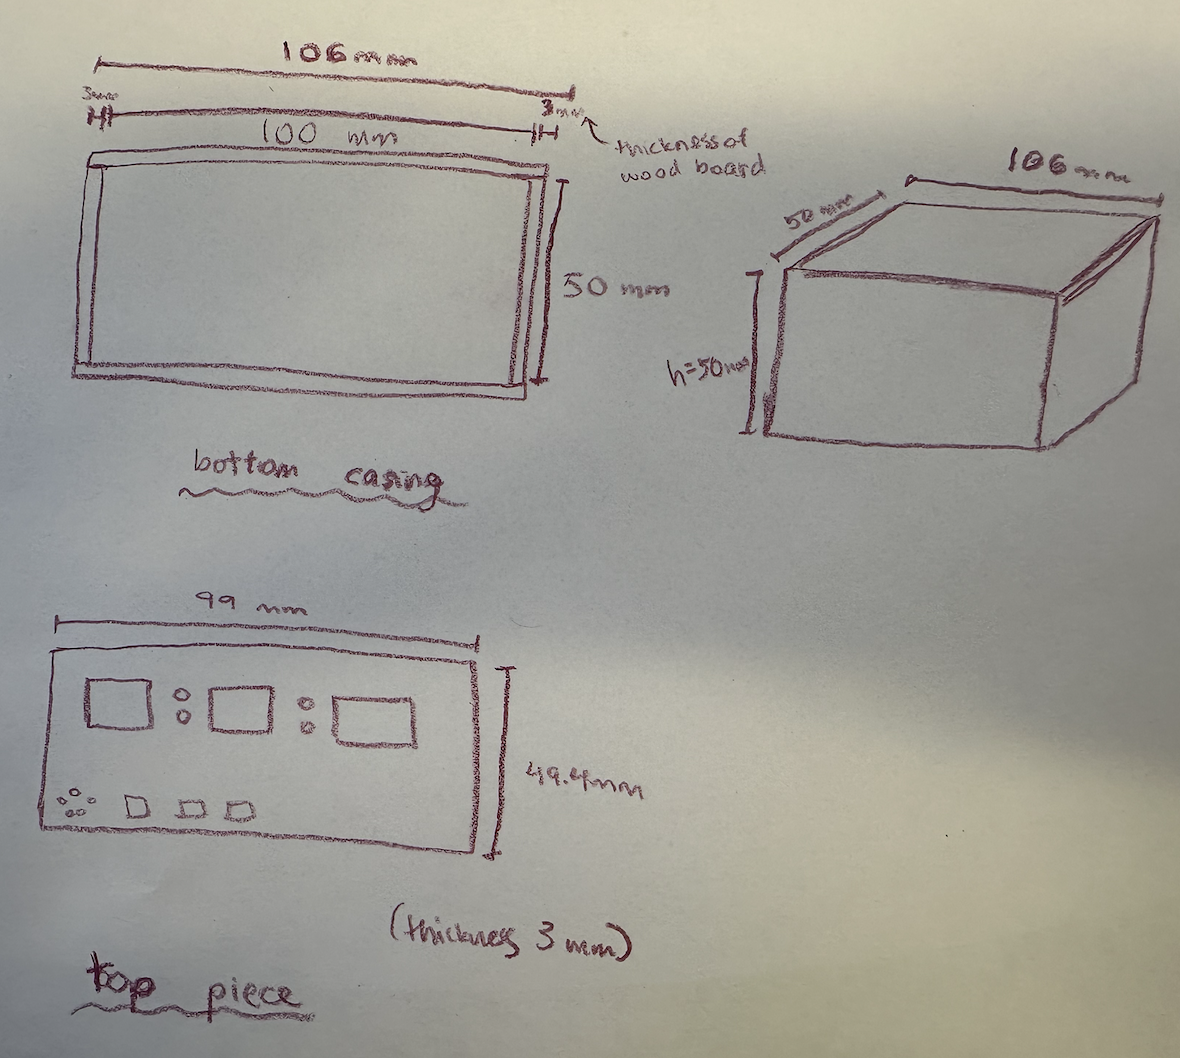 106 mm
3mm
3mm
100 mm
thickness of
wood board
50 mm
bottom casing
106 mm
50 mm
h=50mm
99 mm
49.4mm
(thickness 3 mm)
top piece